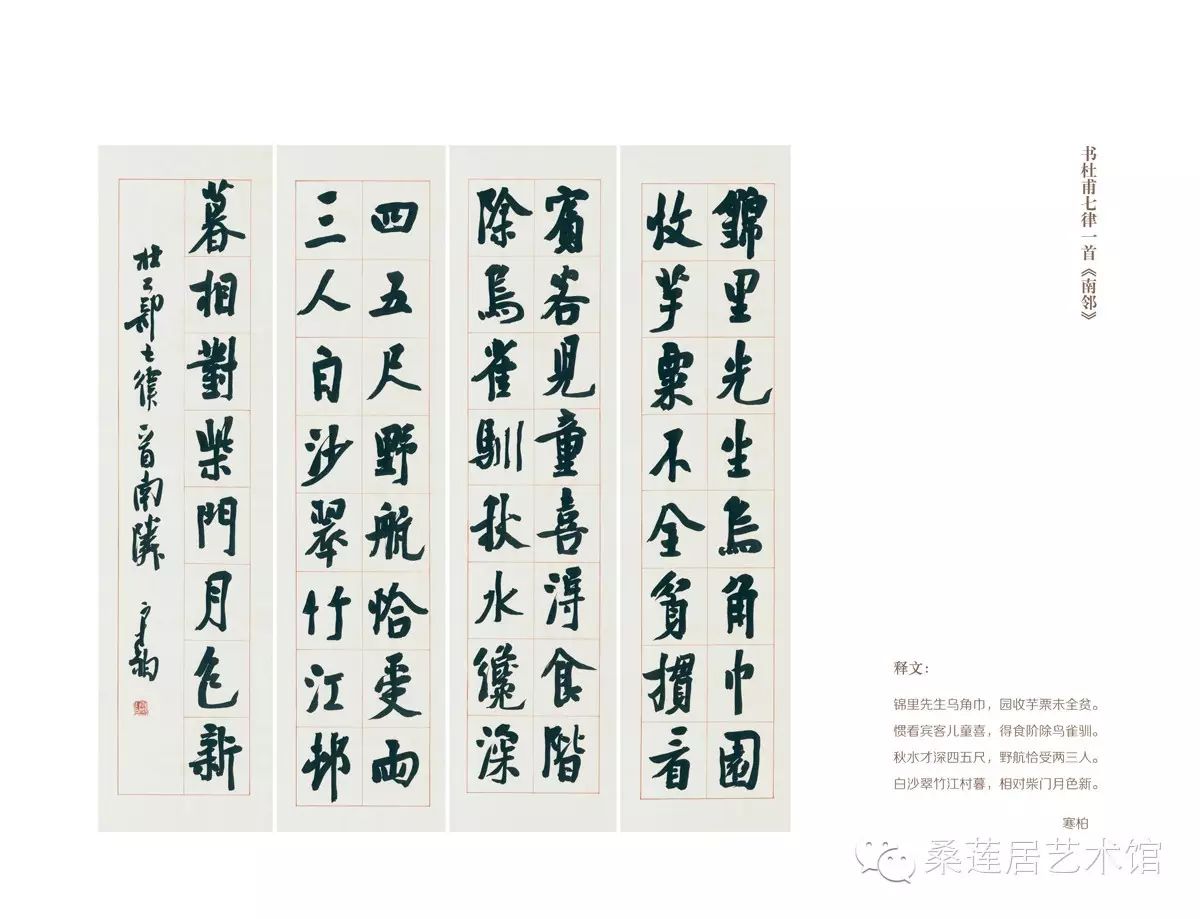 书杜甫七律一首《南邻》
錦里先生烏角巾園
收芋粟不全貧慣看
賓客見童喜淂食階
除鳥雀馴秋水纔深
四五尺野航恰受兩
三人白沙翠竹江邨
暮相對柴門月色新
杜工部七律一首南隣
释文：
锦里先生乌角巾，园收芋栗未全贫。
惯看宾客儿童喜，得食阶除鸟雀驯。
秋水才深四五尺，野航恰受两三人。
白沙翠竹江村暮，相对柴门月色新。
寒柏
桑莲居艺术馆